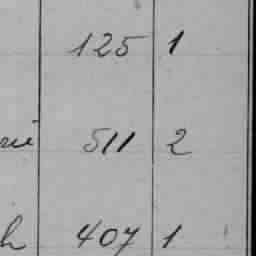 125 1
511 2
407 1